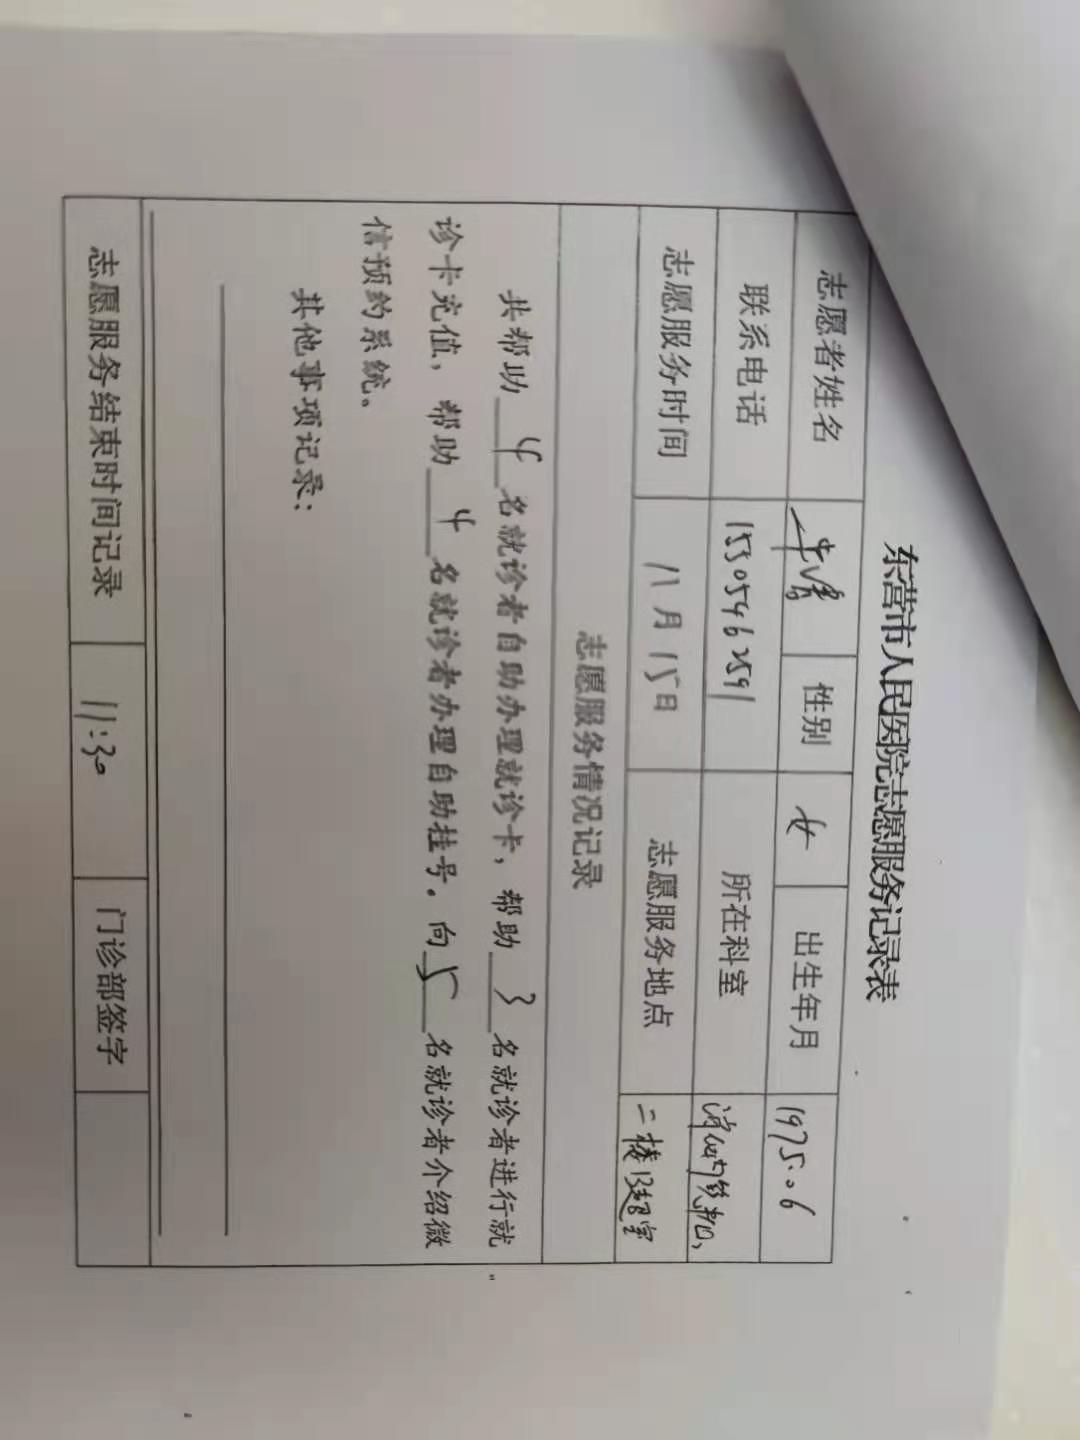 东营市人民医院志愿服务记录表
志愿者姓名 性别 女 出生年月 1975.06
联系电话 15305462591 所在科室
志愿服务时间 11月15日 志愿服务地点 二楼B超室
志愿服务情况记录
共帮助 4 名就诊者自助办理就诊卡，帮助 3 名就诊者进行就
诊卡充值，帮助 4 名就诊者办理自助挂号。向 5 名就诊者介绍微
信预约系统。
其他事项记录：
志愿服务结束时间记录 11:30 门诊部签字